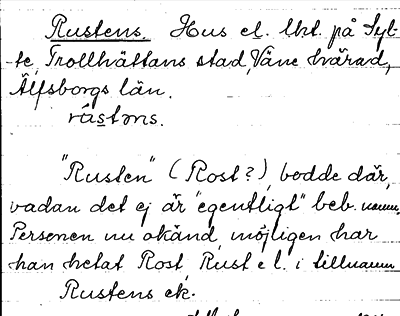 Rustens. Hus el. lht. på Syl-
te, Trollhättans stad, Väne härad,
Älfsborgs län.
rástəns.
"Rusten" (Rost?), bodde där,
vadan det ej är "egentligt" beb. namn.
Personen nu okänd, möjligen har
han hetat Rost, Rust el. i tillnamn
Rustens ek.